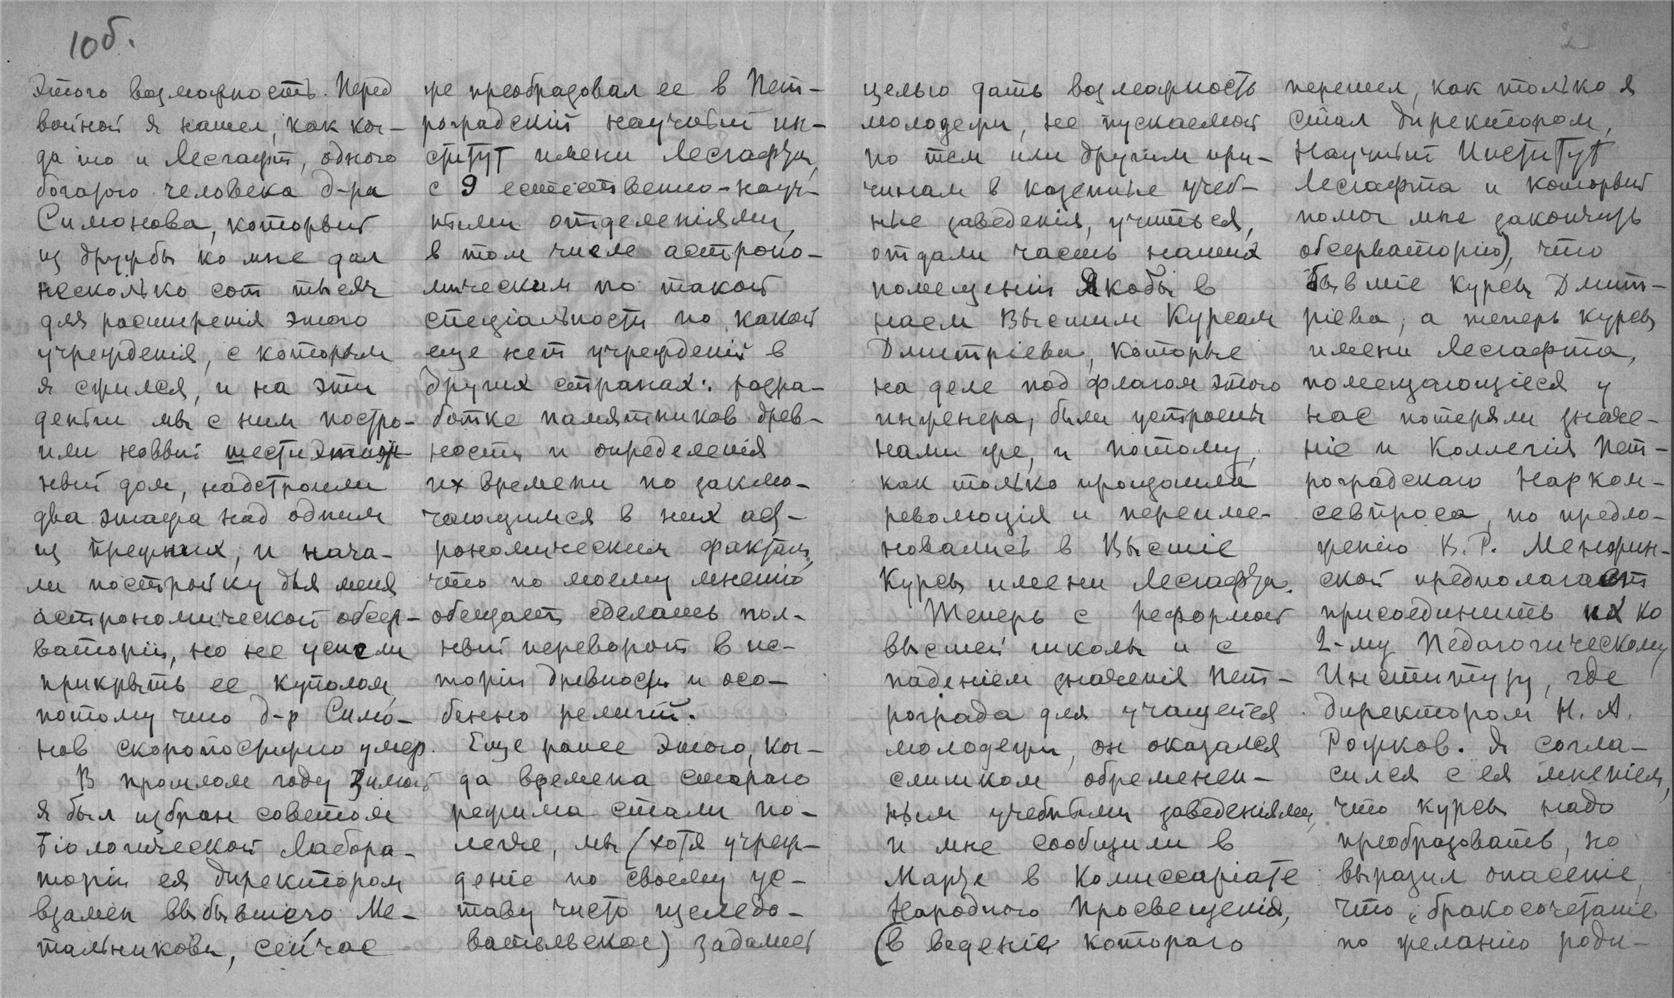 10б.
этого возможность. Перед
войной я нашел, как ког-
да то и Лесгафт, одного
богатого человека д-ра
Симонова, который
из дружбы ко мне дал
несколько сот тысяч
для расширенія этого
учрежденія, с которым
я сжился, и на эти
деньги мы с ним постро-
или новый шестиэтаж-
ный дом, надстроили
два этажа над одним
из прежних, и нача-
ли постройку для меня
астрономической обсер-
ваторіи, но не успели
прикрыть ее куполом,
потому что д-р Симо-
нов скоропостижно умер.
В прошлом году зимой
я был избран советом
Біологической Лабора-
торіи ея директором
взамен выбывшего Ме-
тальникова, сейчас
же преобразовал ее в Пет-
роградскій научный ин-
ститут имени Лесгафта,
с 9 естественно-науч-
ными отделеніями,
в том числе астроно-
мическим по такой
спеціальности по какой
еще нет учрежденій в
других странах: разра-
ботке памятников древ-
ности и определенія
их времени по заклю-
чающимся в них аст-
рономическим фактам,
что по моему мненію
обещает сделать пол-
ный переворот в ис-
торіи древности и осо-
бенно религій.
Еще ранее этого, ког-
да времена стараго
режима стали по-
легче, мы (хотя учреж-
деніе по своему ус-
таву чисто изследо-
вательское) задались
2
целью дать возможность
молодежи, не пускаемой
по тем или другим при-
чинам в казенные учеб-
ные заведенія, учиться,
отдали часть наших
помещеній Якобы в
наем Высшим Курсам
Дмитріева, которые
на деле под флагом этого
инженера, были устроены
нами же, и потому,
как только произошла
революція и переиме-
новались в Высшіе
Курсы имени Лесгафта.
Теперь с реформой
высшей школы и с
паденіем значенія Пет-
рограда для учащейся
молодежи, он оказался
слишком обременен-
ным учебными заведеніями,
и мне сообщили в
Марте в Комиссаріате
Народного Просвещенія,
(в веденіе котораго
перешел, как только я
стал директором,
Научный Институт
Лесгафта и который
помог мне закончить
обсерваторію), что
бывшіе Курсы Дмит-
ріева, а теперь курсы
имени Лесгафта,
помещающіеся у
нас потеряли значе-
ніе и Коллегія Пет-
роградскаго Нарком-
севпроса, по предло-
женію В. Р. Менжин-
ской предполагает
присоединить их ко
2-му Педагогическому
Институту, где
директором Н. А.
Рожков. Я согла-
сился с ея мненіем,
что курсы надо
преобразовать, но
выразил опасеніе,
что „бракосочетаніе
по желанію роди-